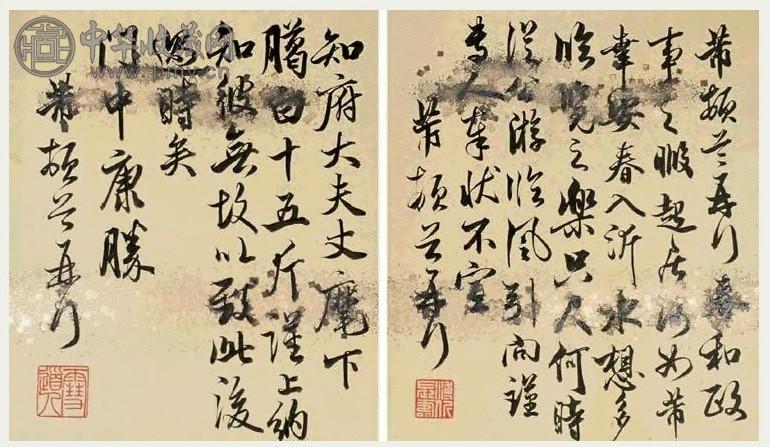 芾頓首再拜春和政
事之暇起居何如芾
幸安春入沂水想多
臨覽之樂只尺何時
從公游臨風引向謹
專人奉狀不宣
芾頓首再拜
知府大夫丈麾下
臈白十五斤謹上納
知彼無故以致此後
時矣
門中康勝
芾頓首再拜
中华收藏网